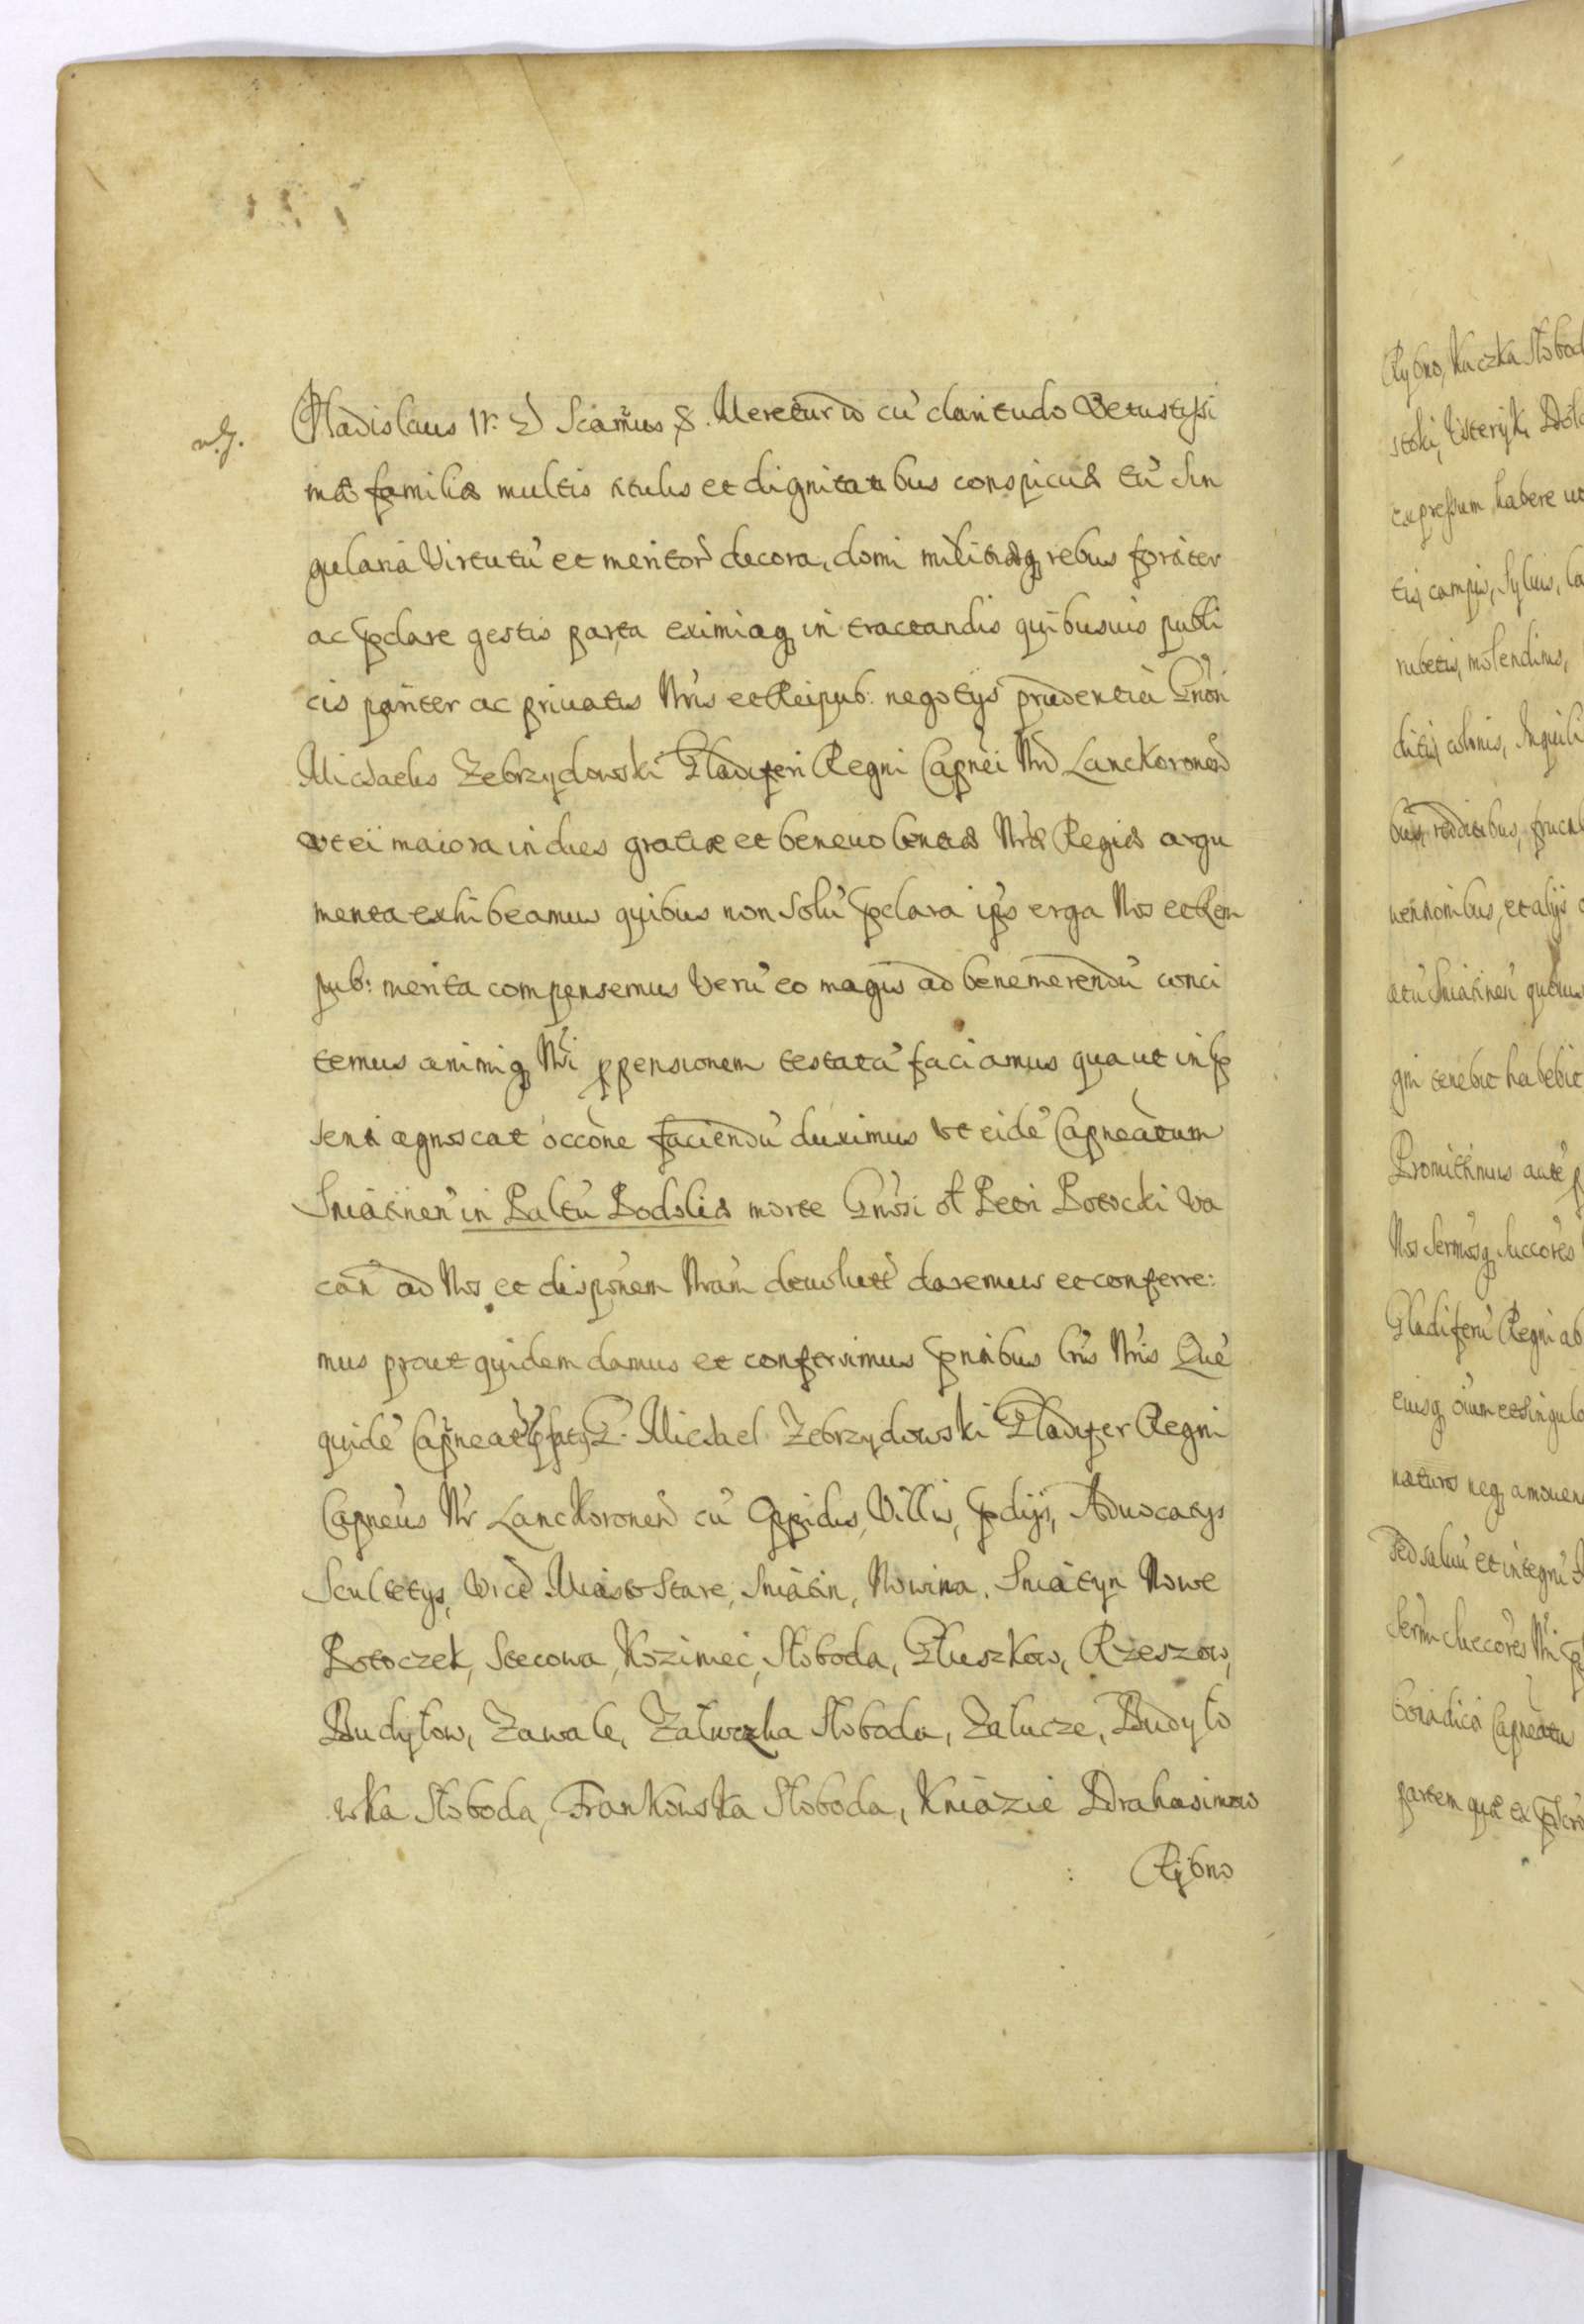 Vladislaus IV. D Sciamus &. Meretur id cu' claritudo Vetustyssi
mae familiae multis titulis et dignitatibus conspicuae tu' Sin
gularia Virtutu' et meritor' decora, domi militiaeq rebus fortiter
ac pclare gestis parta eximiaq in tractandis quibusuis publi
cis pariter ac priuatis Nris et Reipub: negotys prudentia Gnosi
Michaelis Zebrzydowski Gladiferi Regni Capnei Nri Lanckoronen
vt ei maiora in dies gratiae et beneuolentiae Nrae Regiae argu
menta exhibeamus quibus non Solu' pclara ips erga Nos et Rem
pub: merita compensemus Veru' eo magis ad benemerendu' conci
temus animiq Nri ppensionem testata' faciamus qua ut in p
senti agnoscat occone faciendu' duximus vt eide' Capneatum
Sniatinen' in Paltu' Podoliae morte Gnosi ol Petri Potocki Va
can' ad Nos et disponem Nram deuolutu' daremus et conferre:
mus prout quidem damus et conferrimus pntibus lris Nris Que'
quide' Capneatu' pfaty G. Michael Zebrzydowski Gladifer Regni
Capneus Nr Lanckoronen cu' Oppidis, Villis, pdijs, Aduocatys
Scultetys, vide Miasto Stare, Sniatin, Nowina, Sniatyn Nowe
Potoczek, Stecowa, Kozimiec, Słoboda, Głuszkow, Rzeszow,
Budyłow, Zawale, Załuczka Słoboda, Załucze, Budyło
wka Słoboda, Frankowska Słoboda, Kniazie Drahasimow
: Rybno
Rybno, Kuczka Słobod
expressum, habere
tis, campis, Syluis, la
rubetis, molendinis,
ditis, colonis, Inquili
bus, redditibus, fruct
uentionibus, et alijs
atu' Sniatinen' quibus
gni tenebit habebit
Promittimus aute' p
Nos Sermosq Succores
Gladiferu' Regni ab
eiusq oium et Singulo
naturos neq amouen
Sed saluu' et integru'
Serm Succores Nri p
boiadica Capneatu
partem quae ex